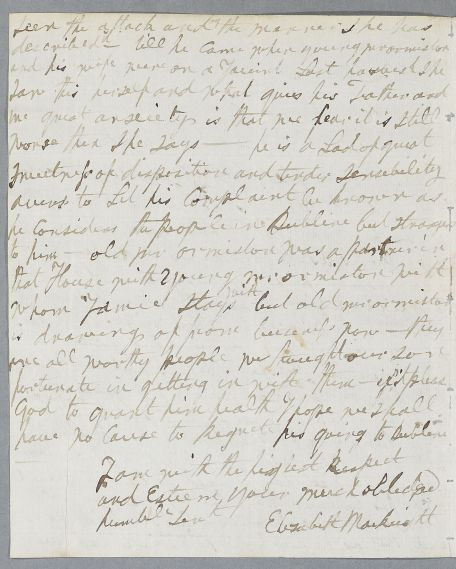 seen the attack and the manner she has
described it till he came when young mr ormiston
and his wife were on a Jaunt Last harvest She
Saw this herself and what gives his Father and
me great anxiety is that we fear it is Still
worse than She Says — he is a Lad of great
Sweetness of disposition and tender Sensibility
avers to Let his Complaint be known as
he Considers the people in Dubline but Strangers
to him — old mr ormiston was a partner in
that House with 2 young mr ormiston with
whom Jamie Stays with but old mr ormiston
is drawing of from business now — they
are all worthy people we thought our Son
fortunate in getting in with them — if it pleas
God to grant him health I hope we shall
have no Cause to Regret his going to Dubline
—
I am with the highest Respect
and Esteem your much obledged
humble Servt
Elizabeth